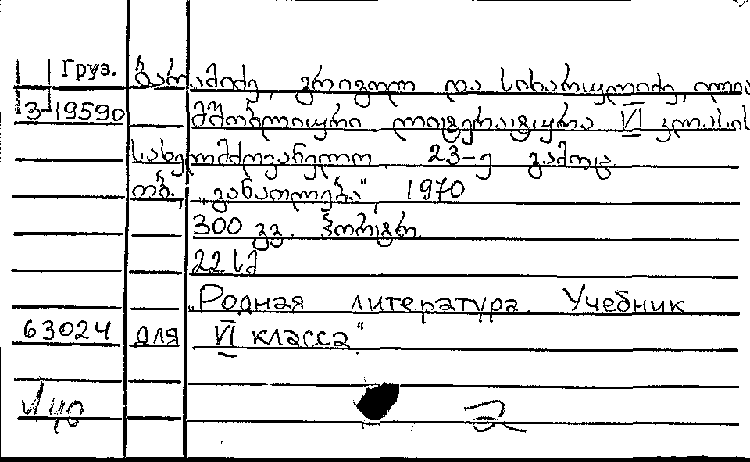 Груз. ბარამიძე, გრიგოლ და სიხარულიძე,
3-19590 მშობლიური ლიტერატურა VI კლასის
სახელმძღვანელო. 23-ე გამოც.
თბ., „განათლება", 1970
300 გვ. პორტრ.
22 სმ
„Родная литература. Учебник
63024 для VI класса."
2